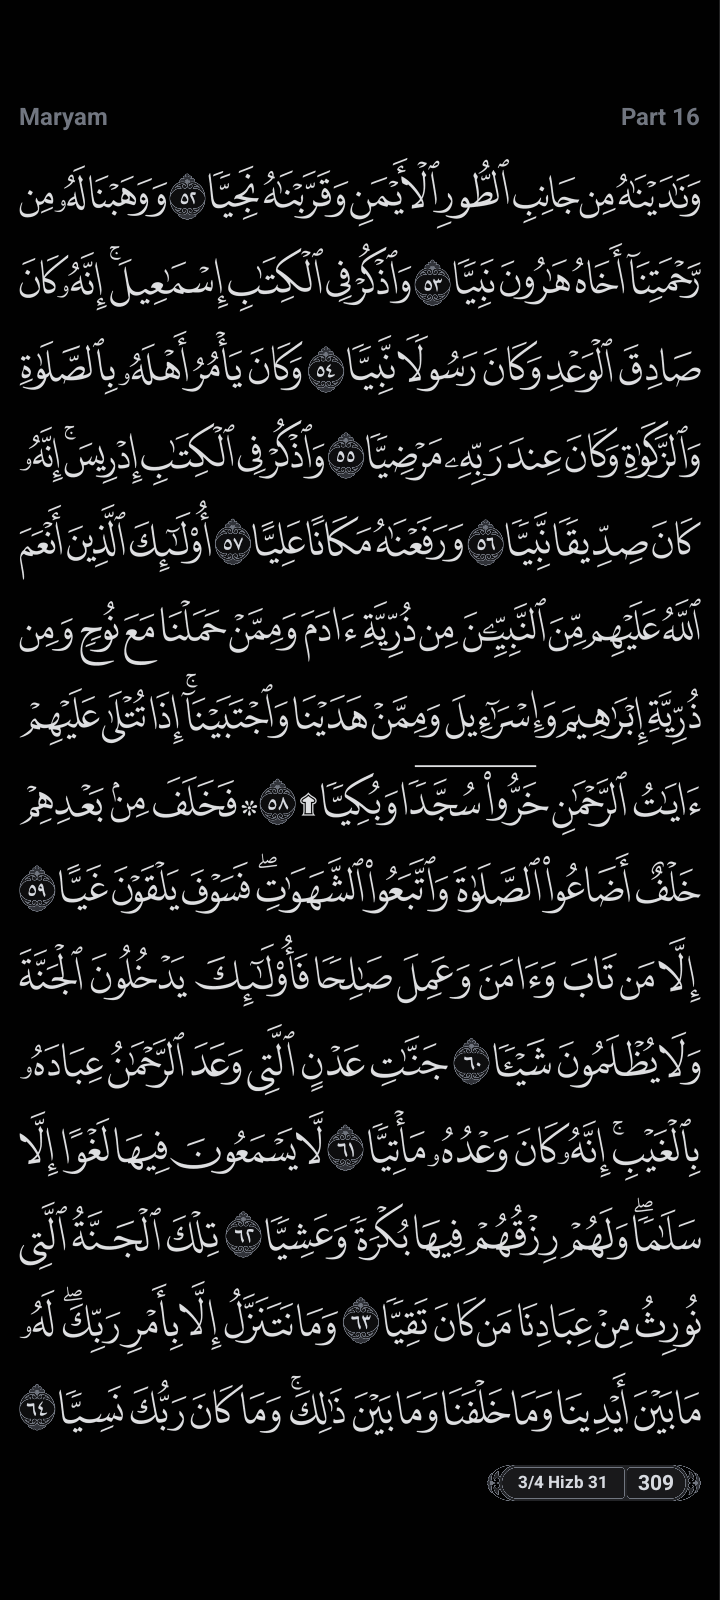 Maryam
Part 16
وَنَٰدَيۡنَٰهُ مِن جَانِبِ ٱلطُّورِ ٱلۡأَيۡمَنِ وَقَرَّبۡنَٰهُ نَجِيّٗا ٥٢ وَوَهَبۡنَا لَهُۥ مِن
رَّحۡمَتِنَآ أَخَاهُ هَٰرُونَ نَبِيّٗا ٥٣ وَٱذۡكُرۡ فِي ٱلۡكِتَٰبِ إِسۡمَٰعِيلَۚ إِنَّهُۥ كَانَ
صَادِقَ ٱلۡوَعۡدِ وَكَانَ رَسُولٗا نَّبِيّٗا ٥٤ وَكَانَ يَأۡمُرُ أَهۡلَهُۥ بِٱلصَّلَوٰةِ
وَٱلزَّكَوٰةِ وَكَانَ عِندَ رَبِّهِۦ مَرۡضِيّٗا ٥٥ وَٱذۡكُرۡ فِي ٱلۡكِتَٰبِ إِدۡرِيسَۚ إِنَّهُۥ
كَانَ صِدِّيقٗا نَّبِيّٗا ٥٦ وَرَفَعۡنَٰهُ مَكَانًا عَلِيًّا ٥٧ أُوْلَٰٓئِكَ ٱلَّذِينَ أَنۡعَمَ
ٱللَّهُ عَلَيۡهِم مِّنَ ٱلنَّبِيِّـۧنَ مِن ذُرِّيَّةِ ءَادَمَ وَمِمَّنۡ حَمَلۡنَا مَعَ نُوحٖ وَمِن
ذُرِّيَّةِ إِبۡرَٰهِيمَ وَإِسۡرَٰٓءِيلَ وَمِمَّنۡ هَدَيۡنَا وَٱجۡتَبَيۡنَآۚ إِذَا تُتۡلَىٰ عَلَيۡهِمۡ
ءَايَٰتُ ٱلرَّحۡمَٰنِ خَرُّواْۤ سُجَّدٗاۤ وَبُكِيّٗا۩ ٥٨ ۞ فَخَلَفَ مِنۢ بَعۡدِهِمۡ
خَلۡفٌ أَضَاعُواْ ٱلصَّلَوٰةَ وَٱتَّبَعُواْ ٱلشَّهَوَٰتِۖ فَسَوۡفَ يَلۡقَوۡنَ غَيًّا ٥٩
إِلَّا مَن تَابَ وَءَامَنَ وَعَمِلَ صَٰلِحٗا فَأُوْلَٰٓئِكَ يَدۡخُلُونَ ٱلۡجَنَّةَ
وَلَا يُظۡلَمُونَ شَيۡـٔٗا ٦٠ جَنَّٰتِ عَدۡنٍ ٱلَّتِي وَعَدَ ٱلرَّحۡمَٰنُ عِبَادَهُۥ
بِٱلۡغَيۡبِۚ إِنَّهُۥ كَانَ وَعۡدُهُۥ مَأۡتِيّٗا ٦١ لَّا يَسۡمَعُونَ فِيهَا لَغۡوًا إِلَّا
سَلَٰمٗاۖ وَلَهُمۡ رِزۡقُهُمۡ فِيهَا بُكۡرَةٗ وَعَشِيّٗا ٦٢ تِلۡكَ ٱلۡجَنَّةُ ٱلَّتِي
نُورِثُ مِنۡ عِبَادِنَا مَن كَانَ تَقِيّٗا ٦٣ وَمَا نَتَنَزَّلُ إِلَّا بِأَمۡرِ رَبِّكَۖ لَهُۥ
مَا بَيۡنَ أَيۡدِينَا وَمَا خَلۡفَنَا وَمَا بَيۡنَ ذَٰلِكَۚ وَمَا كَانَ رَبُّكَ نَسِيّٗا ٦٤
3/4 Hizb 31
309